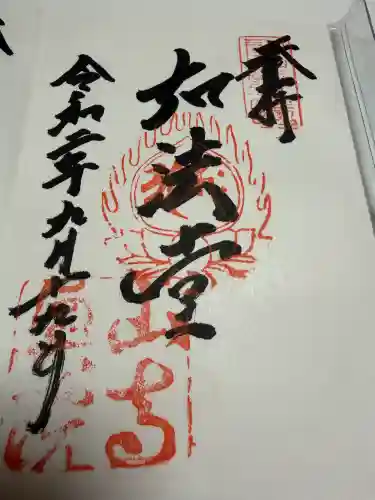 奉拝
加法堂
令和二年九月十九日